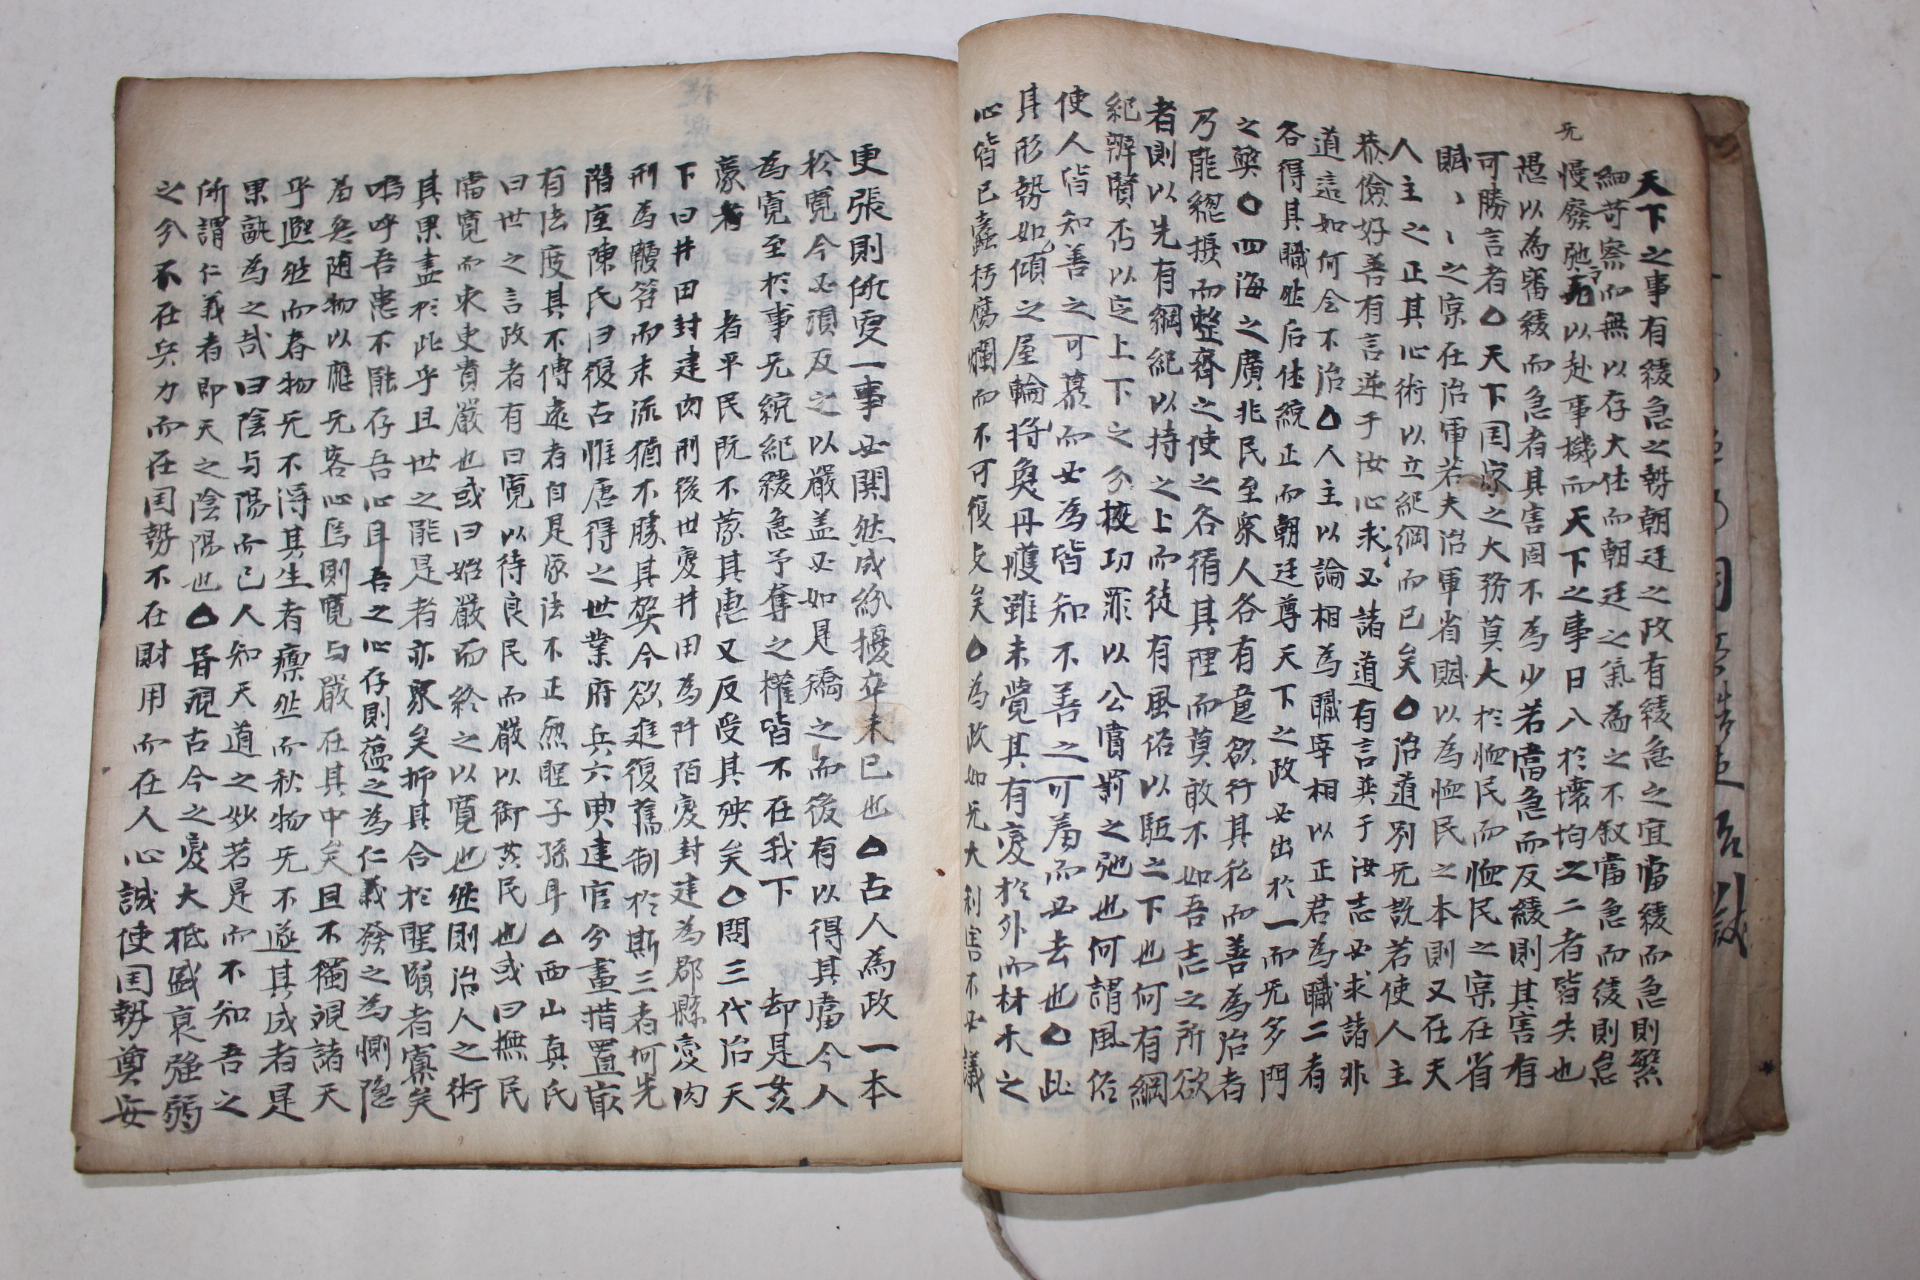 天下之事有緩急之勢朝廷之政有緩急之宜當緩而急則繁
細苛察而無以存大体而朝廷之氣為之不叙當急而緩則怠
慢廢弛无以赴事機而天下之事日入於壞均之二者皆失也
愚以為當緩而急者其害固不為少若當急而反緩則其害有
可勝言者△天下国家之大務莫大於恤民而恤民之宲在省
賦丶丶之宲在治軍若夫治軍省賦以為恤民之本則又在夫
人主之正其心術以立紀綱而已矣△治道別无說若使人主
恭儉好善有言逆于汝心求必諸道有言巽于汝志必求諸非
道這如何会不治△人主以論相為職宰相以正君為職二者
各得其職然后体統正而朝廷尊天下之政必出於一而无多門
之弊△四海之廣兆民至衆人各有意欲行其私而善為治者
乃能緫攝而整齊之使之各循其理而莫敢不如吾志之所欲
者則以先有綱紀以持之上而徒有風俗以駈之下也何有綱
紀辨賢否以定上下之分核功罪以公賞罰之弛也何謂風俗
使人皆知善之可慕而必為皆知不善之可羞而必去也△此
其形勢如傾之屋輪將奐丹雘雖未覺其有変於外而材木之
心皆已蠹朽腐爛而不可復支矣△為政如无大利害不必議
更張則所更一事必鬨然成紛擾卒未已也△古人為政一本
於寛今必須反之以嚴盖必如是矯之而後有以得其當今人
為寛至於事无統紀緩急予奪之權皆不在我下 却是奸
蒙者 者平民既不蒙其惠又反受其殃矣△問三代治天
下曰井田封建肉刑後世変井田為阡陌変封建為郡縣変肉
刑為鞭笞而末流猶不勝其弊今欲進復舊制於斯三者何先
階座陳氏曰復古惟唐得之世業府兵六典建官今畫措置㝡
有法度其不傳遠者自是家法不正忽聖子孫耳△西山真氏
曰世之言政者有曰寛以待良民而嚴以御姦民也或曰撫民
當寛而束吏貴嚴也或曰始嚴而終之以寛也然則治人之術
其果盡於此乎且世之能是者亦衆矣抑其合於聖賢者寡矣
嗚呼吾患不能存吾心耳吾之心存則蘊之為仁義發之為惻隐
羞㤙随物以應无容心焉則寛与嚴在其中矣且不獨視諸天
乎熈然而春物无不得其生者凛然而秋物无不遂其成者是
果孰為之㦲曰陰与陽而已人知天道之妙若是而不知吾之
所謂仁義者即天之陰陽也△昔視古今之変大抵盛衰强弱
之分不在兵力而在国勢不在財用而在人心誠使国勢奠安